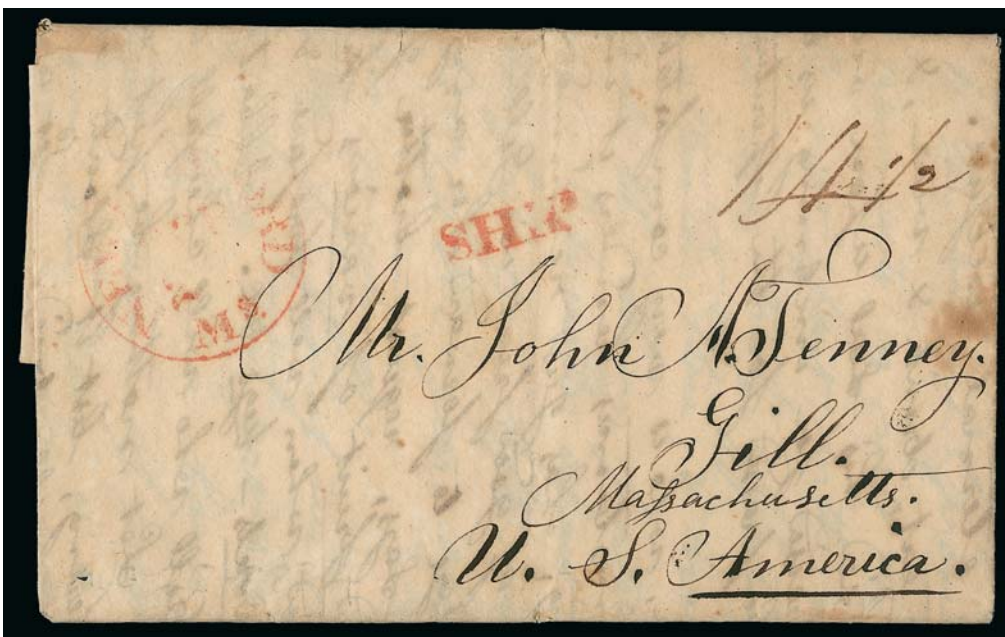 SHIP
14 1/2
Ms.
Mr. John A. Tenney.
Gill.
Massachusetts.
U. S. America.